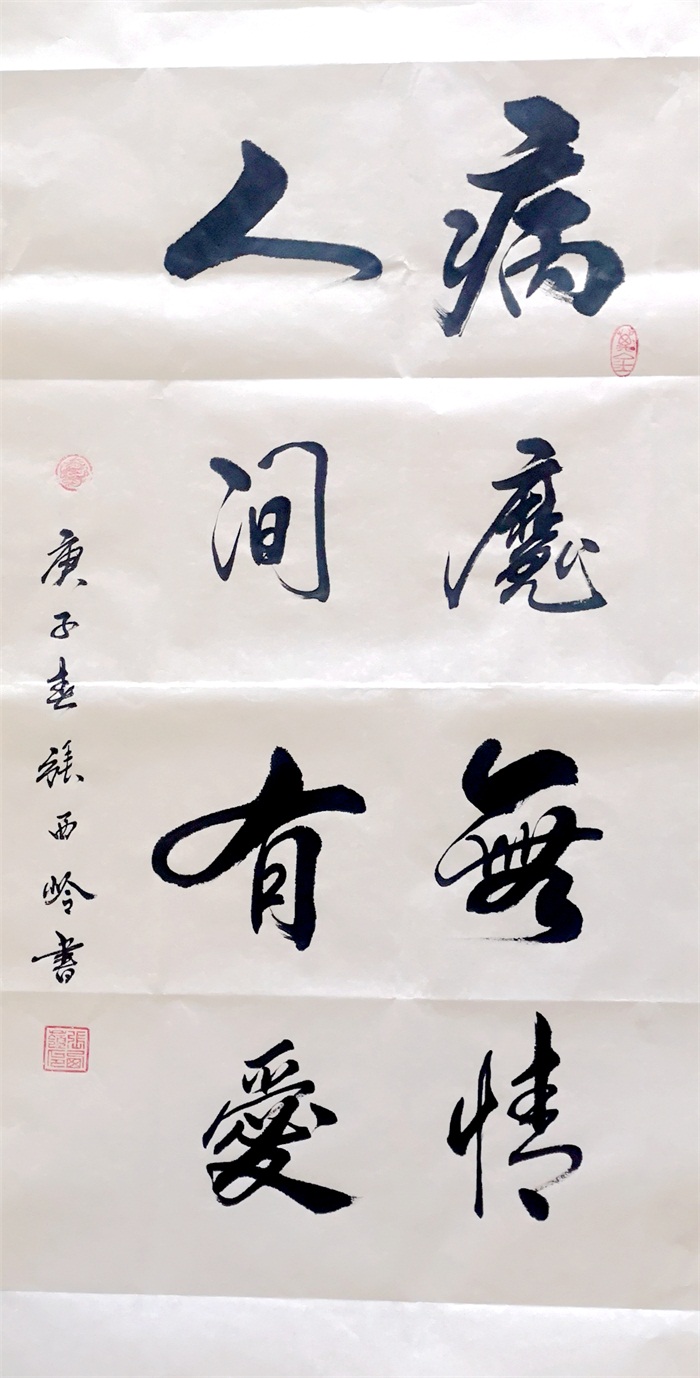 病魔無情
人间有愛
庚子春張西岭書